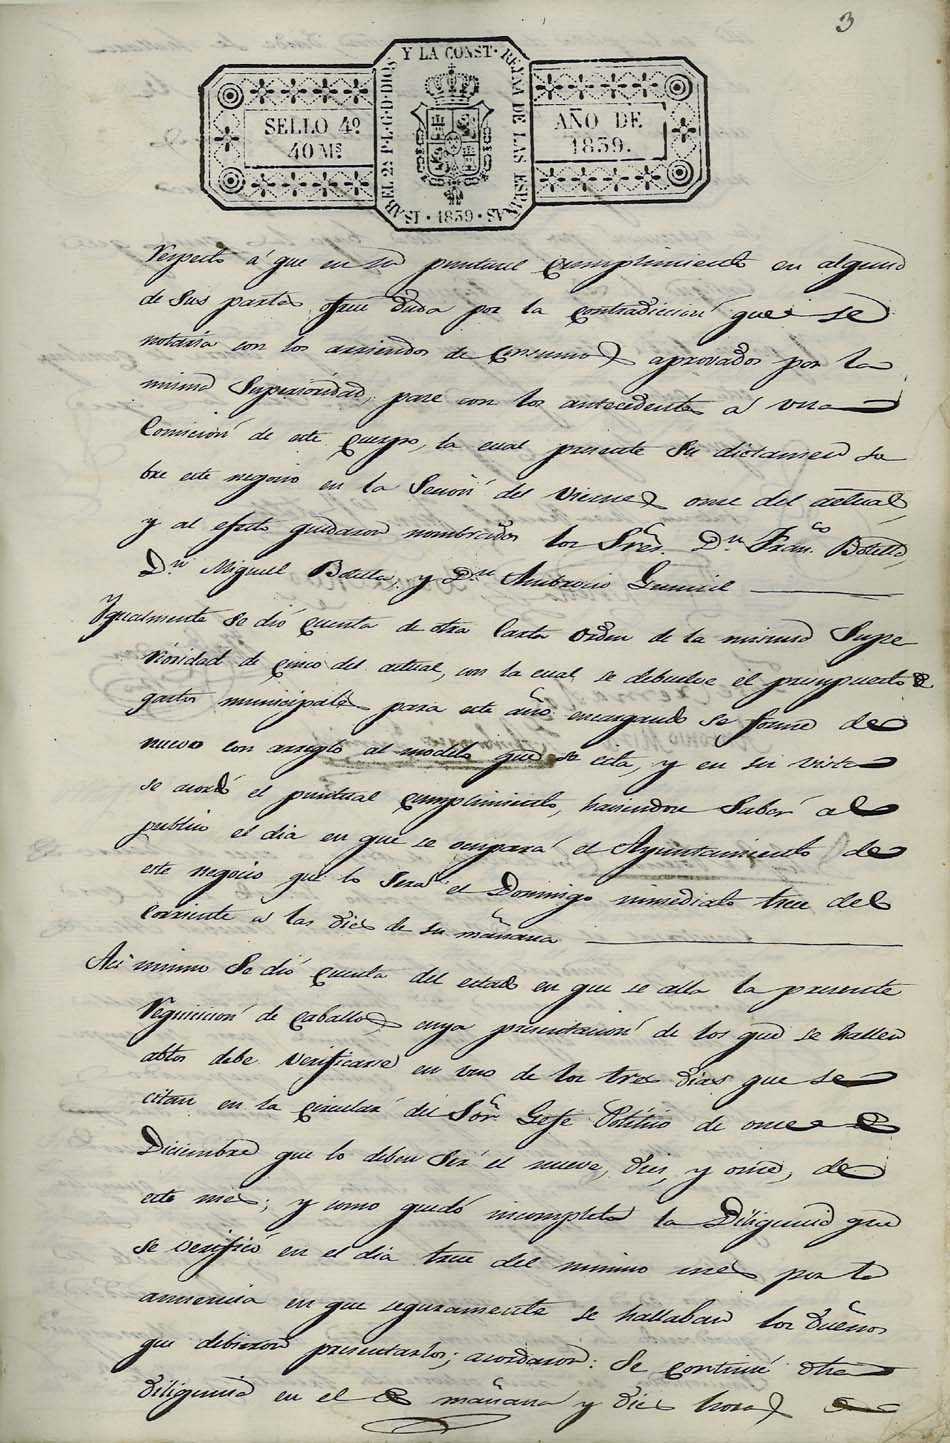 3
ISABEL 2ª P.L.G.D.DIOS Y LA CONST. REYNA DE LAS ESPAÑAS
SELLO 4º
40 Ms
AÑO DE
1839.
· 1839 ·
Respecto á que en su puntual cumplimiento en alguna
de sus partes ofrece duda por la contradiccion que se
notaria con los arriendos de consumos aprovados por la
misma Superioridad, pase con los antecedentes á una
Comicion de este cuerpo, la cual presente su dictamen so
bre este negocio en la Secion del viernes once del actual,
y al efecto quedaron nombrados los Sres. Dn. Franco. Botella,
Dn. Miguel Botella, y Dn. Ambrocio
Ygualmente se dió cuenta de otra Carta orden de la misma Supe
rioridad de cinco del actual, con la cual se debuelve el presupuesto de
gastos municipales para este año encargando se forme de
nuevo con arreglo al modelo que se cita, y en su vista
se acordó el puntual cumplimiento, haciendose saber al
publico el dia en que se ocupará el Ayuntamiento de
este negocio que lo será el Domingo inmediato trece del
corriente á las dies de su mañana
Aci mismo se dió cuenta del estado en que se alla la presente
requicicion de caballos, cuya presentacion de los que se hallen
abtos debe verificarse en uno de los tres dias que se
citan en la circular del Sor. Gefe Politico de once de
Diciembre que lo deben ser el nueve, dies, y once, de
este mes; y como quedó incompleta la Diligencia que
se verificó en el dia trece del mismo mes por la
ausencia en que seguramente se hallaban los dueños
que debieron presentarlos; acordaron: Se continue otra
diligencia en el de mañana y dies horas de